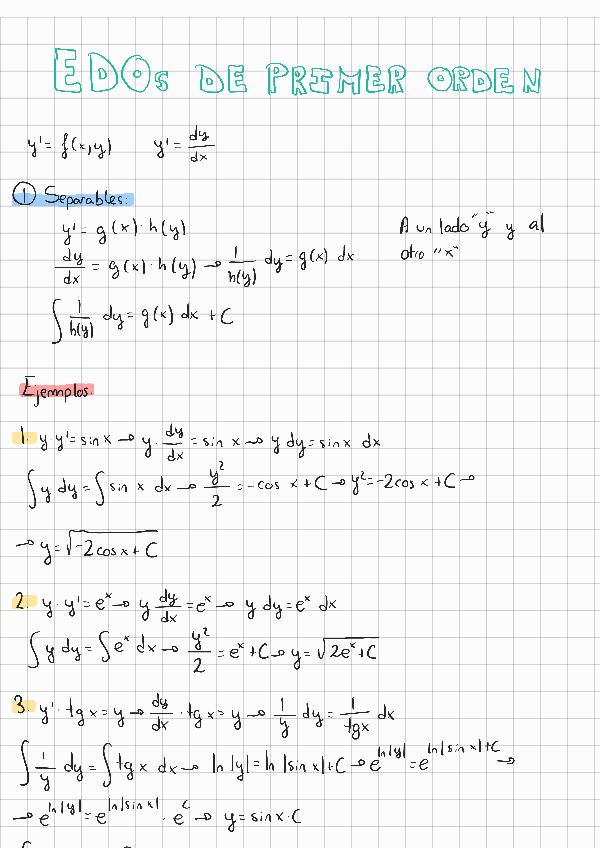 EDOs DE PRIMER ORDEN
y' = f(x,y)    y' = dy/dx
① Separables:
y' = g(x)·h(y)    A un lado "y" y al
dy/dx = g(x)·h(y) → 1/h(y) dy = g(x) dx    otro "x"
∫ 1/h(y) dy = g(x) dx + C
Ejemplos
1. y·y' = sin x → y·dy/dx = sin x → y dy = sin x dx
∫ y dy = ∫ sin x dx → y²/2 = -cos x + C → y² = -2cos x + C →
→ y = √(-2cos x + C)
2. y·y' = eˣ → y dy/dx = eˣ → y dy = eˣ dx
∫ y dy = ∫ eˣ dx → y²/2 = eˣ + C → y = √(2eˣ + C)
3. y'·tg x = y → dy/dx · tg x = y → 1/y dy = 1/tg x dx
∫ 1/y dy = ∫ tg x dx → ln|y| = ln|sin x| + C → e^(ln|y|) = e^(ln|sin x| + C) →
→ e^(ln|y|) = e^(ln|sin x|) · e^C → y = sin x · C